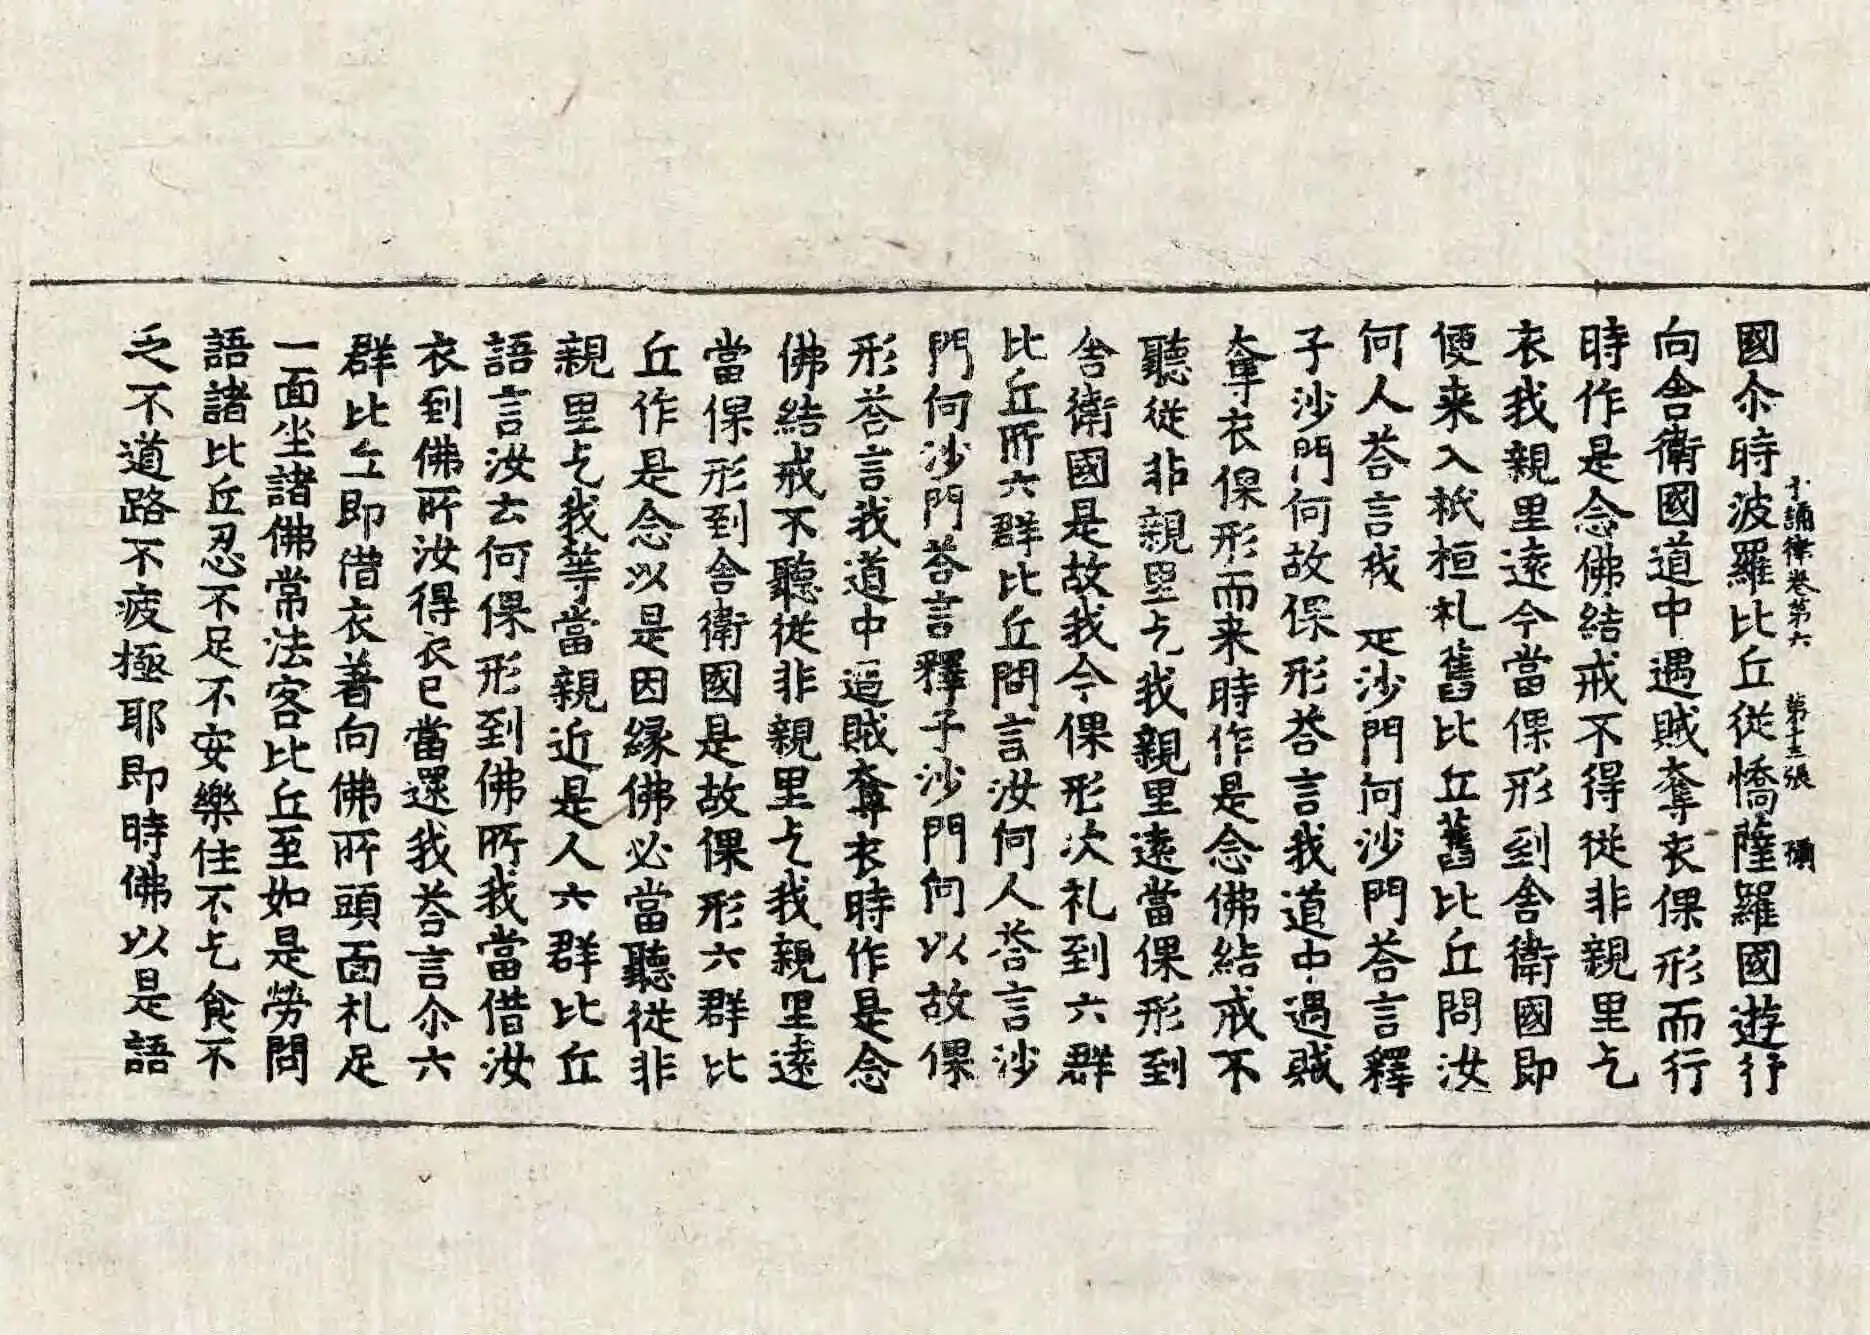 十誦律卷第六　第十三張　獦
國尒時波羅比丘従憍薩羅國遊行
向舍衛國道中遇賊奪衣倮形而行
時作是念佛結戒不得従非親里乞
衣我親里逺今當倮形到舍衛國即
便来入祇桓礼舊比丘舊比丘問汝
何人荅言我 是沙門何沙門荅言釋
子沙門何故倮形荅言我道中遇賊
奪衣倮形而来時作是念佛結戒不
聽従非親里乞我親里逺當倮形到
舍衛國是故我今倮形次礼到六群
比丘所六群比丘問言汝何人荅言沙
門何沙門荅言釋子沙門何以故倮
形荅言我道中逼賊奪衣時作是念
佛結戒不聽従非親里乞我親里逺
當倮形到舍衛國是故倮形六群比
丘作是念以是因緣佛必當聽従非
親里乞我等當親近是人六群比丘
語言汝去何倮形到佛所我當借汝
衣到佛所汝得衣已當還我荅言尒六
群比丘即借衣著向佛所頭面礼足
一面坐諸佛常法客比丘至如是勞問
語諸比丘忍不足不安樂住不乞食不
乏不道路不疲極耶即時佛以是語